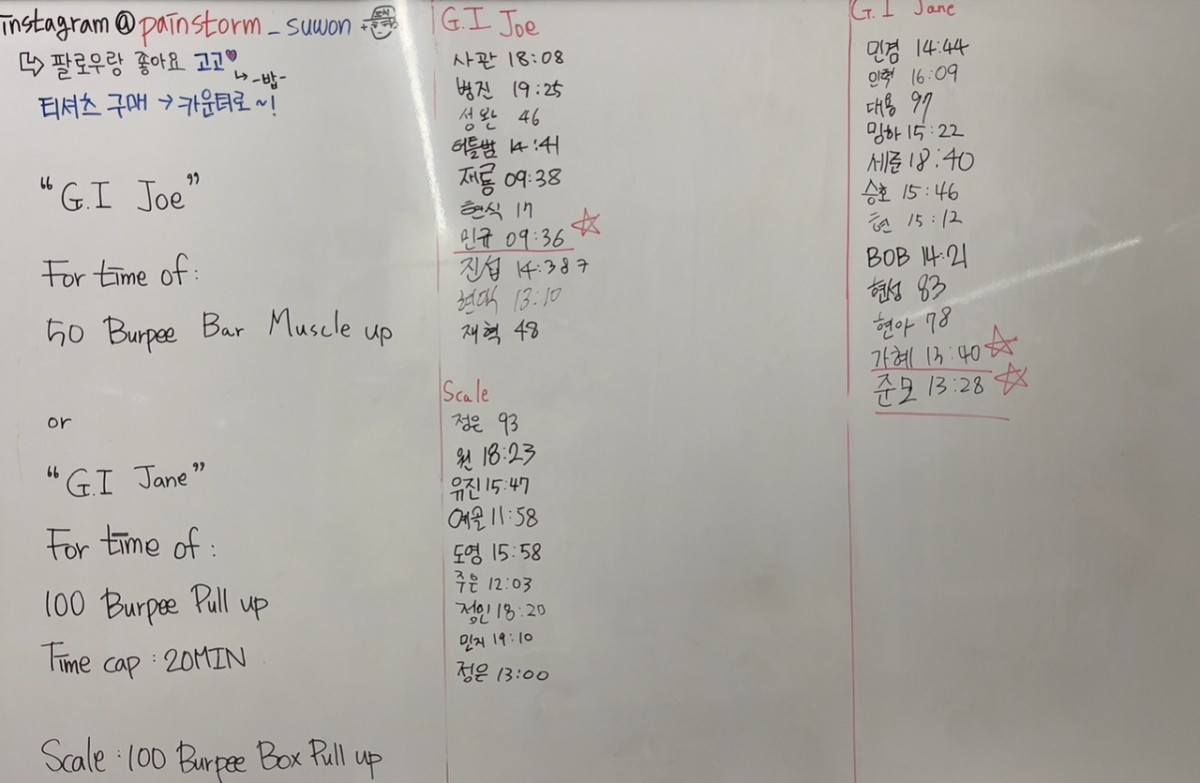 instagram@painstorm_suwon
↳ 팔로우랑 좋아요 고고♥
↳ -밥-
티셔츠 구매 → 카운터로~!
"G.I Joe"
For time of:
50 Burpee Bar Muscle up
or
"G.I Jane"
For time of:
100 Burpee Pull up
Time cap : 20MIN
Scale : 100 Burpee Box Pull up
G.I Joe
사관 18:08
병진 19:25
성완 46
14:41
재룡 09:38
현식 17
민규 09:36 ☆
진섭 14:38
13:10
재혁 48
Scale
정은 93
원 18:23
유진 15:47
예끌 11:58
도영 15:58
주은 12:03
정인 18:20
민지 19:10
정은 13:00
G.I Jane
민겸 14:44
인혁 16:09
대용 97
밍하 15:22
세준 18:40
승호 15:46
현 15:12
BOB 14:21
현성 83
현아 78
가혜 13:40 ☆
준모 13:28 ☆